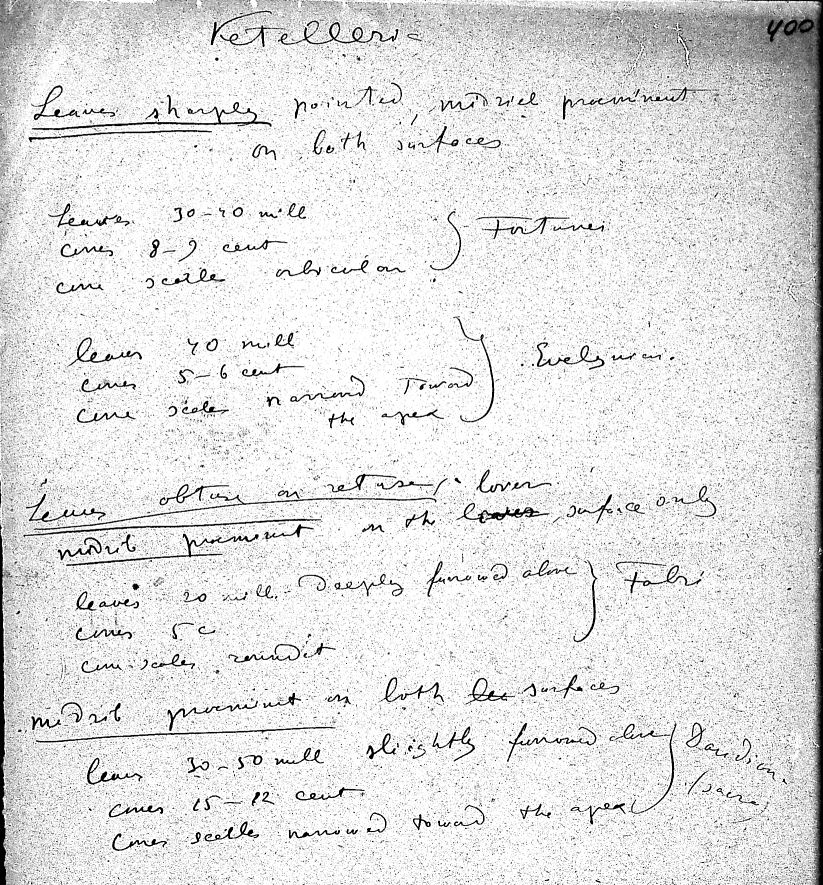 400
Keteleeria
Leaves sharply pointed, midrib prominent
on both surfaces
Leaves 30-40 mill
cones 8-9 cent
cone scales orbicular
Fortunei
leaves 40 mill
cones 5-6 cent
cone scales narrowed toward
the apex
Evelyniana.
Leaves obtuse or retuse, lower
midrib prominent on the leaves surface only
leaves 20 mill. Deeply furrowed above
cones 5 c
cone-scales rounded
Fabri
midrib prominent on both surfaces
leaves 30-50 mill slightly furrowed above
cones 15-12 cent.
Cones scales narrowed toward the apex
Davidian.
(sacra)